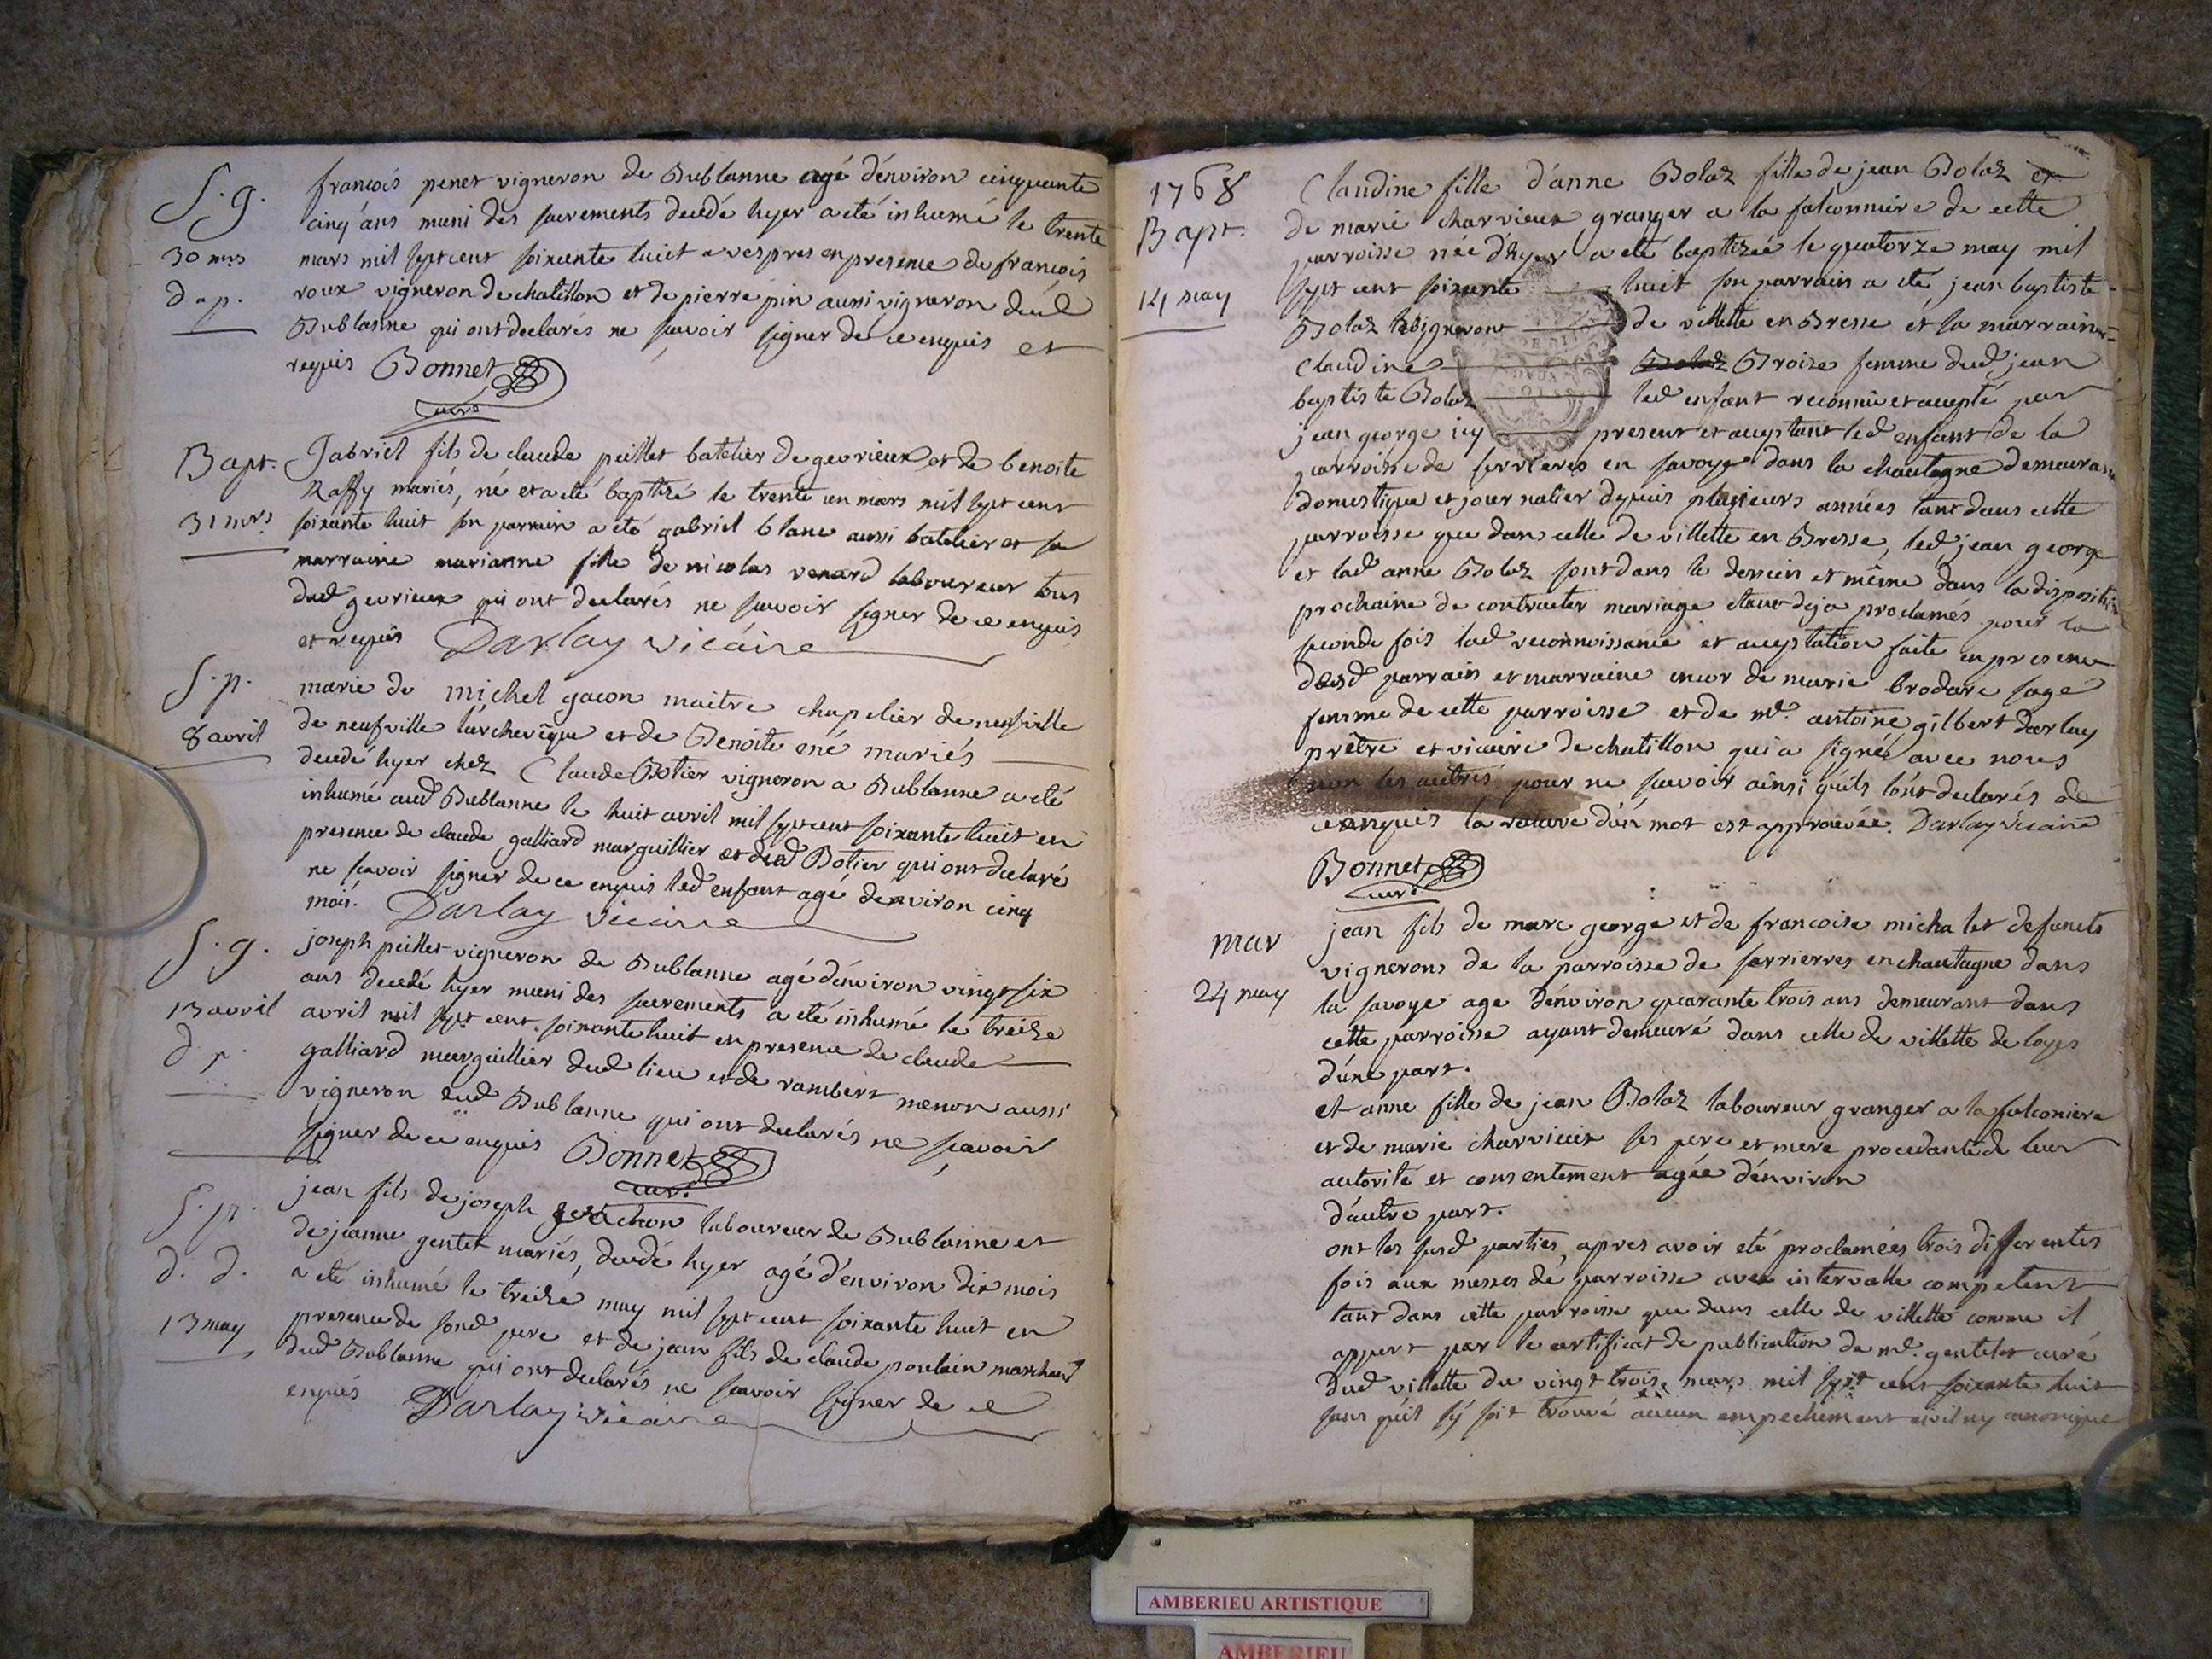 S. g.
30 mrs
d. p.
francois penet vigneron de Bublanne agé d'environ cinquante
cinq ans muni des sacrements decedé hyer a eté inhumé le trente
mars mil sept cent soixante huit a vespres en presence de francois
roux vigneron de chatillon et de pierre pin aussi vigneron dud
Bublanne qui ont declarés ne scavoir signer de ce enquis et
requis Bonnet
curé
Bapt.
31 mrs
Gabriel fils de claude peillet batelier de gevrieux et de benoite
Raffy mariés, né et a eté baptizé le trente un mars mil sept cent
soixante huit son parrain a eté gabriel blanc aussi batelier et sa
marraine marianne fille de nicolas venard laboureur tous
dud gevrieux qui ont declarés ne scavoir signer de ce enquis
et requis Darlay vicaire
S. p.
8 avril
marie de michel gacon maitre chapelier de neufville
de neufville l'archevêque et de Benoite mariés
decedé hyer chez Claude Botier vigneron a Bublanne a eté
inhumé aud Bublanne le huit avril mil sept cent soixante huit en
presence de claude galliard marguillier et dud Botier qui ont declaré
ne scavoir signer de ce enquis led enfant agé d'environ cinq
mois. Darlay vicaire
S. g.
13 avril
d. p.
joseph peillet vigneron de Bublanne agé d'environ vingt six
ans decedé hyer muni des sacrements a eté inhumé le treize
avril mil sept cent soixante huit en presence de claude
galliard marguillier dud lieu et de rambert menon aussi
vigneron dud Bublanne qui ont declarés ne scavoir
signer de ce enquis Bonnet
curé
S. p.
d. d.
13 may
jean fils de joseph laboureur de Bublanne et
de jeanne gentet mariés, decedé hyer agé d'environ dix mois
a eté inhumé le treizé may mil sept cent soixante huit en
presence de sond pere et de jean fils de claude poulain marchand
dud Bublanne qui ont declarés ne scavoir signer de ce
enquis Darlay vicaire
1768
Bapt.
14 may
Claudine fille d'anne Bolaz fille de jean Bolaz et
de marie charvieux granger a la falconniere de cette
parroisse née d'hyer a eté baptizée le quatorze may mil
sept cent soixante huit son parrain a eté jean baptiste
Bolaz vigneron de villette en Bresse et sa marraine
Claudine Bolaz Broize femme dud jean
baptiste Bolaz led enfant reconnu et accepté par
jean george icy present et acceptant led enfant de la
parroisse de serrieres en savoye dans la chautagne demeurant
domestique et journalier depuis plusieurs années tant dans cette
parroisse que dans celle de villette en Bresse, led jean george
et lad anne Bolaz sont dans le dessein et même dans la disposition
prochaine de contracter mariage etant deja proclamés pour la
seconde fois lad reconnoissance et acceptation faite en presence
desd parrain et marraine encor de marie brodare sage
femme de cette parroisse et de mr. antoine gilbert Darlay
prêtre et vicaire de chatillon qui a signé avec nous
non les autres pour ne scavoir ainsi qu'ils l'ont declarés de
ce enquis la rature d'un mot est approuvée. Darlay vicaire
Bonnet
curé
mar
24 may
jean fils de marc george et de francoise michalet defuncts
vignerons de la parroisse de serrierres en chautagne dans
la savoye age d'environ quarante trois ans demeurant dans
cette parroisse ayant demeuré dans celle de villette de loyes
d'une part.
et anne fille de jean Bolaz laboureur granger a la falconiere
et de marie charvieux ses pere et mere procedante de leur
autorité et consentement agée d'environ
d'autre part.
ont les susd parties, apres avoir eté proclamées trois differentes
fois aux messes de parroisse avec intervalle competent
tant dans cette parroisse que dans celle de villette comme il
appert par le certificat de publication de mr. gentelet curé
dud villette du vingt trois mars mil sept cent soixante huit
sans qu'il s'y soit trouvé aucun empechement civil ny canonique
AMBERIEU ARTISTIQUE
AMBERIEU